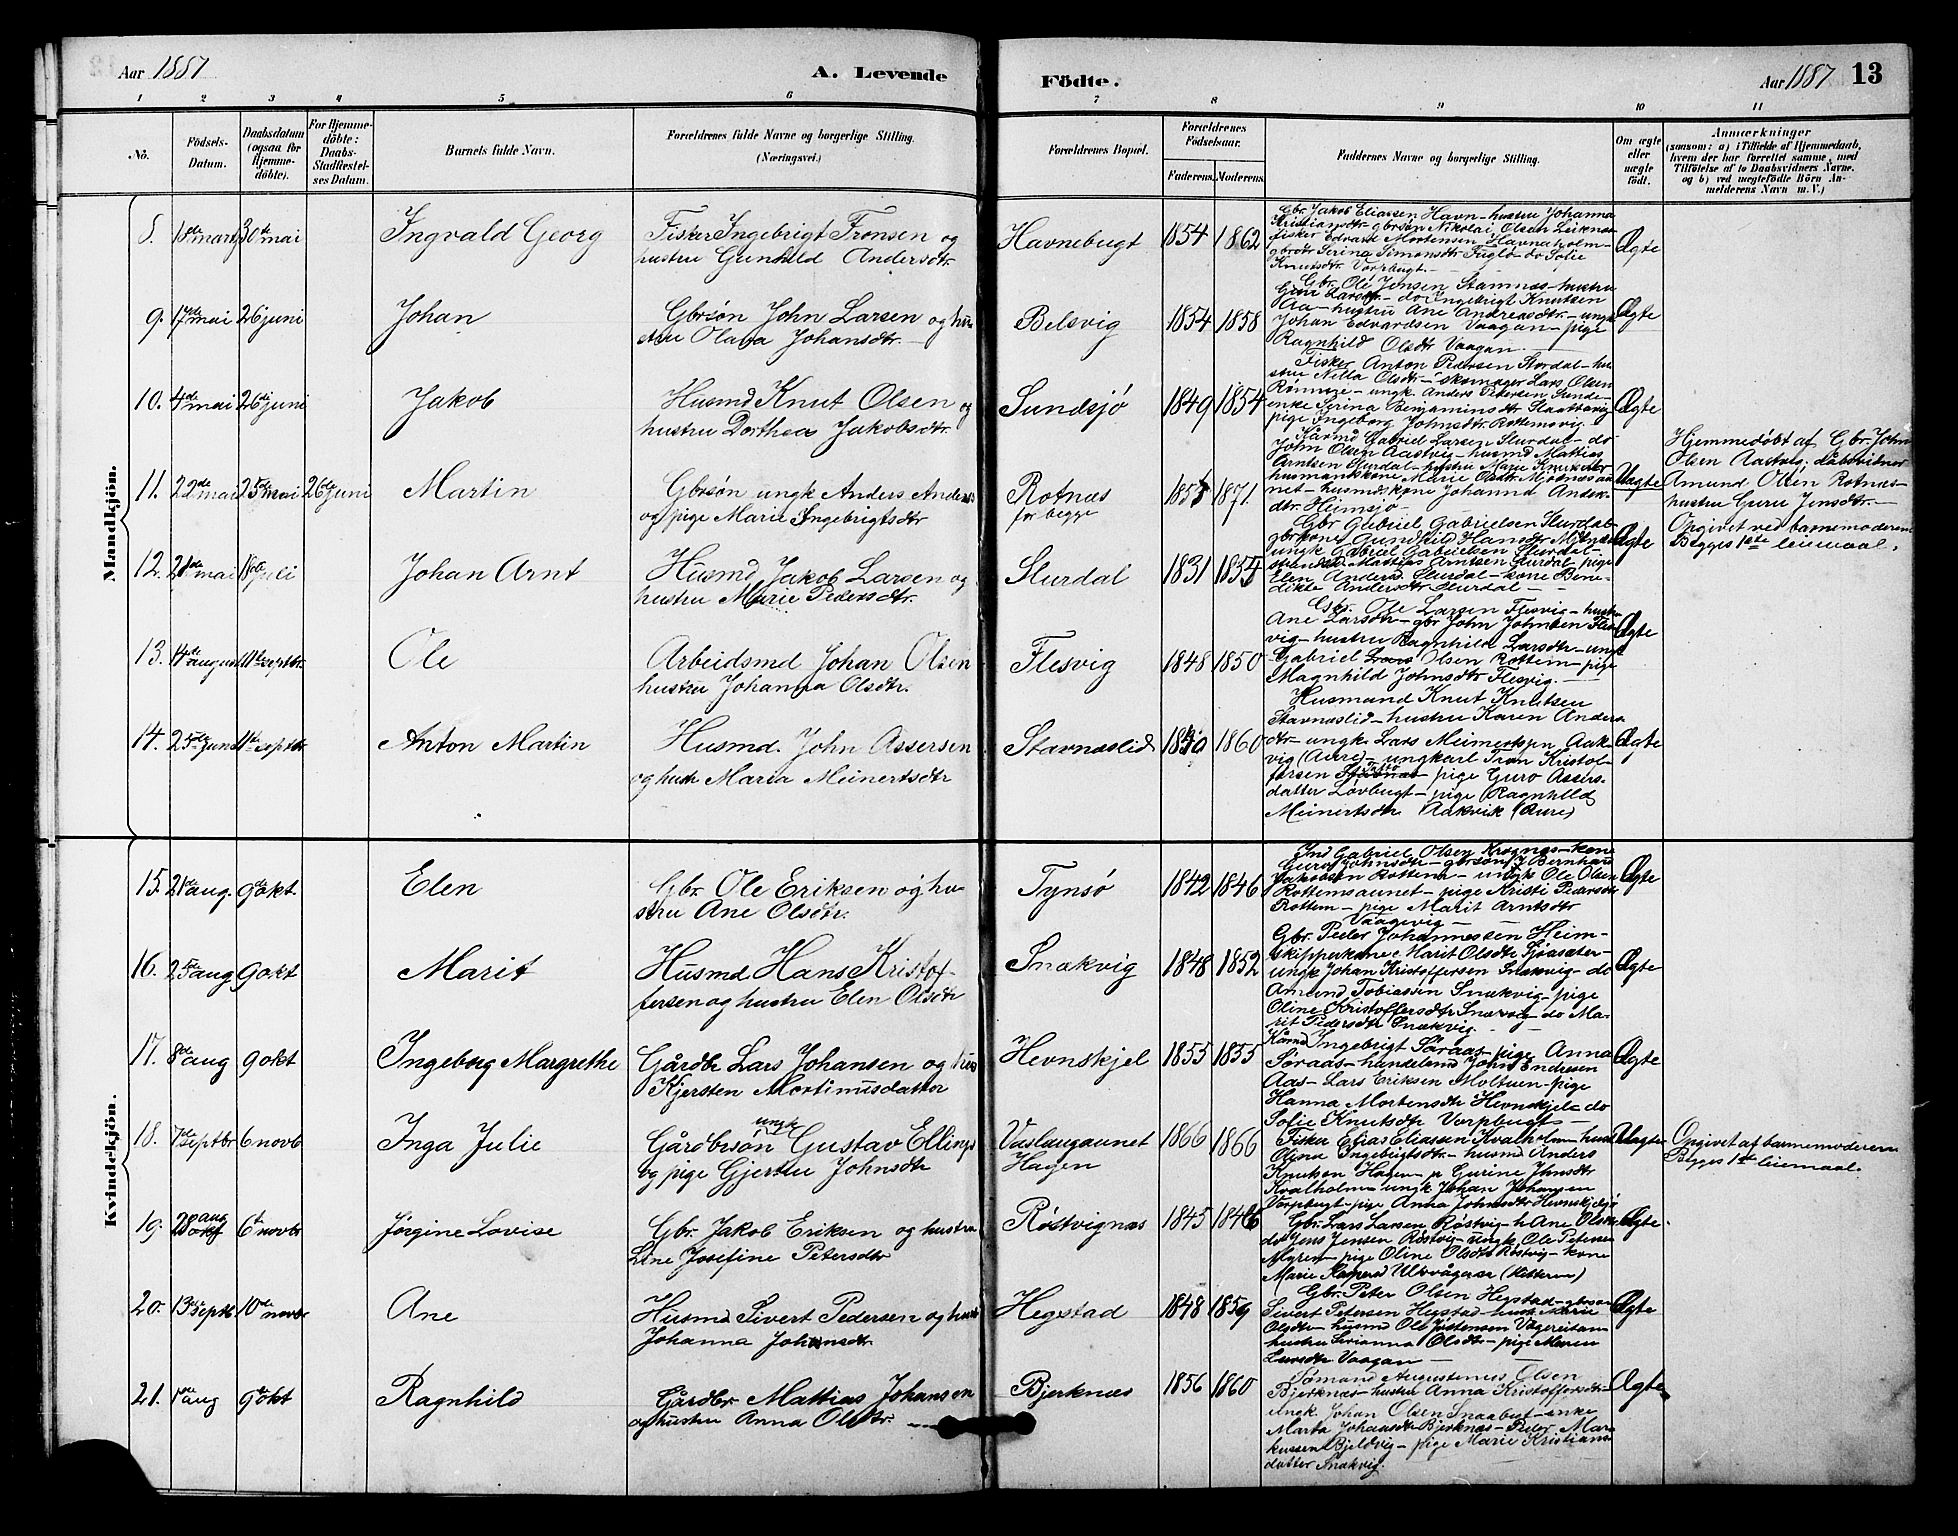 Aar 1887 A. Levende
Födte. Aar 1887 13
1 2 3 4 5 6 7 8 9 10 11
No. Födsels-Datum. Daabsdatum (ogsaa for Hjemme-döbte). For Hjemme-döbte: Daabs-Stadfæstel-ses Datum. Barnets fulde Navn. Forældrenes fulde Navne og borgerlige Stilling. (Næringsvei.)
Forældrenes Bopæl. Forældrenes Födselsaar. Faderens. Moderens. Faddernes Navne og borgerlige Stilling. Om ægte eller uægte födt. Anmærkninger (saasom: a) i Tilfælde af Hjemmedaab, hvem der har forrettet samme, med Tilföielse af to Daabsvidners Navne. og b) ved uægtefödte Börn An-melderens Navn m. V.)
Mandkjön.
8. 30 mai Ingvald Georg Fisker Ingebrigt Tronsen og
hustru Gunhild Andersdtr.
Havnebugt 1854 1862 Ægte
Gbr. Jakob Eliasen Havn - hustru Johanna
Kristiansdtr - gbrsön Nikolai Olsen
fisker Edvard Mortensen Havnaholm -
gbrdtr Serina Simonsdtr Fuglö - do Sofie
Knutsdtr. Vorpbugt.
9. 17de mai 26 juni Johan Gbrsön John Larsen og hu-
stru Olava Johansdtr.
Belsvig 1854 1858 Ægte
Gbr. Ole Jensen Stamnes - hustru
Guru Larsdtr - do Ingebrigt Knutsen
Aa - hustru Ane Andreasdtr - ungk
Johan Edvardsen Vaagan - pige
Ragnhild Olsdtr Vaagan.
10. 4de mai 26 juni Jakob Husmd Knut Olsen og
hustru Dorthea Jakobsdtr.
Sundsjö 1849 1854 Ægte
Fisker Anton Pedersen Stordal - hu-
stru Nilla Olsdtr - skomager Lars Olsen
ungk Anders Petersen Sunde -
enke Serina Benjaminsdtr Slaattavig
pige Ingeborg Johnsdtr. Rottemsvig
11. 22de mai 25de mai 26de juni Martin Gbrsön ungk Anders Anders
og pige Marie Ingebrigtsdtr
Rotnæs
for begge
1871. Uægte
Kårmd Gabriel Larsen Slurdal - do
John Olsen Aastvig - husmd Mattias
Arntsen Slurdal - hustru Marie
husmandskone Marie Olsdtr
husmdskone Johanna Anders-
dtr. Heimsjö
Hjemmedöbt af Gbr. John
Olsen Aastvig. dåbsvidner
Amund Olsen Rotnæs -
hustru Guru Jensdtr. -
Opgivet ved barnemoderen
Begges 1ste leiemaal.
12. 21de mai juli Johan Arnt Husmd Jakob Larsen og
hustru Marie Pedersdtr.
Slurdal 1831 Ægte
Gbr Gabriel Gabrielsen Slurdal -
gbrkone Gunhild Hansdtr
ungk Gabriel Gabrielsen Slurdal -
Mattias Arntsen Slurdal pige
Elen Andersd. Slurdal - kone Bene-
dikte Andersdtr Slurdal -
13. 14de august 11te septbr. Ole Arbeidsmd Johan Olsen
hustru Johanna Olsdtr.
Flesvig 1848 1850 Ægte
Gbr. Ole Larsen Flesvig - hustru
Ane Larsdtr - gbr John Johnsen Fles-
vig - hustru Ragnhild Larsdtr - ungk
Gabriel Olsen Rottem - pige
Magnhild Johnsdtr Flesvig. -
14. 25de juni 11te septbr Anton Martin Husmd. John Assersen
og hustr Maria Meinertsdtr
Stavnæslid 1860 Ægte
Husmand Knut Knutsen
Stavnæslid - hustru Karen Anders
dtr - ungk Lars Meinertsen Aak-
vig (Aure) - ungkarl Tron Kristof-
fersen - pige Guro Assers-
datter Lövbugt - pige Ragnhild
Meinertsdtr Aakvik (Aure)
Kvindekjön.
15. 21de aug. 9de okt Elen Gbr. Ole Eriksen og hu-
stru Ane Olsdtr.
Tynsö 1842 1846 Ægte
Gabriel Olsen - kone
Guru Johnsdtr - gbrsön Bernhard
Jakobsen Rottem - ungk Ole Olsen
Rottemsaunet - pige Kristi Pedersdtr
Rottem - pige Marit Arntsdtr
Vaagevig -
16. 25de aug 9 okt Marit Husmd Hans Kristof-
fersen og hustru Elen Olsdtr
Snækvig 1848 1852 Ægte
Gbr. Peder Johannessen Heim -
skipperkone Marit Olsdtr
ungk Johan Kristoffersen Snækvig - do
Amund Tobiassen Snækvig - pige
Oline Kristoffersdtr Snækvig - do Ma-
rit Pedersdtr Snækvig.
17. 8de aug 9 okt Ingeborg Margrethe Gårdbr Lars Johansen og hus
Kjersten Mortinusdatter
Hevnskjel 1855 1855 Ægte
Kårmd Ingebrigt Söraas - pige Anna
Söraas - handelsmd John Endresen
Aas - Lars Eriksen Moltuen - pige
Hanna Mortensdtr Hevnskjel - do
Sofie Knutsdtr Vorpbugt -
18. 7de septbr 6 novb Inga Julie Gårdbrsön ungk Gustav Ellings
og pige Gjertru Johnsdtr
Vaslaugaunet
Hagen
1866 1866 Uægte
Fisker Elias Eliasen Kvalholm - hust
Olina Ingebrigtsdtr - husmd Anders
Knutsen Hagen - p Gurine Jhnsdtr
Kvalholm ungk Johan Johansen
Vorpbugt - pige Anna Johnsdtr
Opgivet af barnemoderen
Begges 1ste leiemaal.
19. 28 aug 6te novbr Jörgine Lovise Gbr. Jakob Eriksen og hustru
Line Josefine Petersdtr
Röstvignæs 1845 1846 Ægte.
Gbr. Lars Larsen Röstvig - h Ane Olsdtr
do Jens Jensen Röstvig - ungk Ole Petersen
Myren - pige Oline Olsdtr Röstvig - kone
Marie (Hitteren)
20. 13de septb. 10de novbr Ane Husmd Sivert Pedersen og hust
Johanna Johnsdtr
Hegstad 1848 1859 Ægte
Gbr. Peter Olsen Hegstad - gbrsön
Sivert Petersen Hegstad - hust Marie
Olsdtr - husmd Ole Jostensen
hustru Serianna Olsdtr - pige Maren
Larsdtr Vaagan
21. 1ste aug 9de okt Ragnhild Gårdbr. Mattias Johansen
og hustru Anna Olsdtr. -
Bjerknæs 1856 1860 Ægte
Augustinus Olsen
Bjerknæs - hustru Anna Kristoffersdtr -
ungk Johan Olsen Snaabugt - enke
Marta Johansdtr Bjerknæs - Peder Mar-
kussen Bjeldvig - pige Marie Kristians-
datter Snækvig.